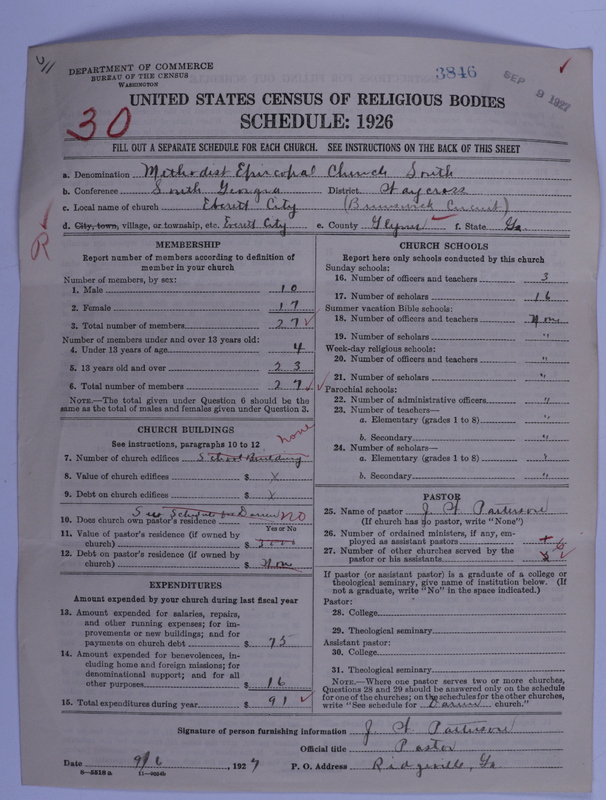 DEPARTMENT OF COMMERCE
BUREAU OF THE CENSUS
WASHINGTON
3846
SEP 9 1927
30
UNITED STATES CENSUS OF RELIGIOUS BODIES
SCHEDULE: 1926
FILL OUT A SEPARATE SCHEDULE FOR EACH CHURCH. SEE INSTRUCTIONS ON THE BACK OF THIS SHEET
a. Denomination Methodist Episcopal Church South
b. Conference South Georgia District Waycross
c. Local name of church Everett City (Brunswick Circuit)
d. City, town, village, or township, etc. Everett City e. County Glynn f. State Ga
R
MEMBERSHIP
Report number of members according to definition of member in your church
Number of members, by sex:
1. Male 10
2. Female 17
3. Total number of members 27
Number of members under and over 13 years old:
4. Under 13 years of age 4
5. 13 years old and over 23
6. Total number of members 27
NOTE.—The total given under Question 6 should be the
same as the total of males and females given under Question 3.
CHURCH BUILDINGS
none
See instructions, paragraphs 10 to 12
7. Number of church edifices School Building
8. Value of church edifices $ X
9. Debt on church edifices $ X
See Schedule for Darien no
10. Does church own pastor's residence
Yes or No
11. Value of pastor's residence (if owned by
church) $
12. Debt on pastor's residence (if owned by
church) $ None
EXPENDITURES
Amount expended by your church during last fiscal year
13. Amount expended for salaries, repairs,
and other running expenses; for im-
provements or new buildings; and for
payments on church debt $ 75
14. Amount expended for benevolences, in-
cluding home and foreign missions; for
denominational support; and for all
other purposes $ 16
15. Total expenditures during year $ 91
CHURCH SCHOOLS
Report here only schools conducted by this church
Sunday schools:
16. Number of officers and teachers 3
17. Number of scholars 16
Summer vacation Bible schools:
18. Number of officers and teachers None
19. Number of scholars "
Week-day religious schools:
20. Number of officers and teachers "
21. Number of scholars "
Parochial schools:
22. Number of administrative officers "
23. Number of teachers—
a. Elementary (grades 1 to 8) "
b. Secondary "
24. Number of scholars—
a. Elementary (grades 1 to 8) "
b. Secondary "
PASTOR
25. Name of pastor J. W. Patterson
(If church has no pastor, write "None")
26. Number of ordained ministers, if any, em-
ployed as assistant pastors
27. Number of other churches served by the
pastor or his assistants 6
If pastor (or assistant pastor) is a graduate of a college or
theological seminary, give name of institution below. (If
not a graduate, write "No" in the space indicated.)
Pastor:
28. College
29. Theological seminary
Assistant pastor:
30. College
31. Theological seminary
NOTE.—Where one pastor serves two or more churches,
Questions 28 and 29 should be answered only on the schedule
for one of the churches; on the schedules for the other churches,
write "See schedule for Darien church."
Signature of person furnishing information J. W. Patterson
Official title Pastor
Date 9/6, 1927 P. O. Address Ridgeville, Ga
8—5518a 11—9554b